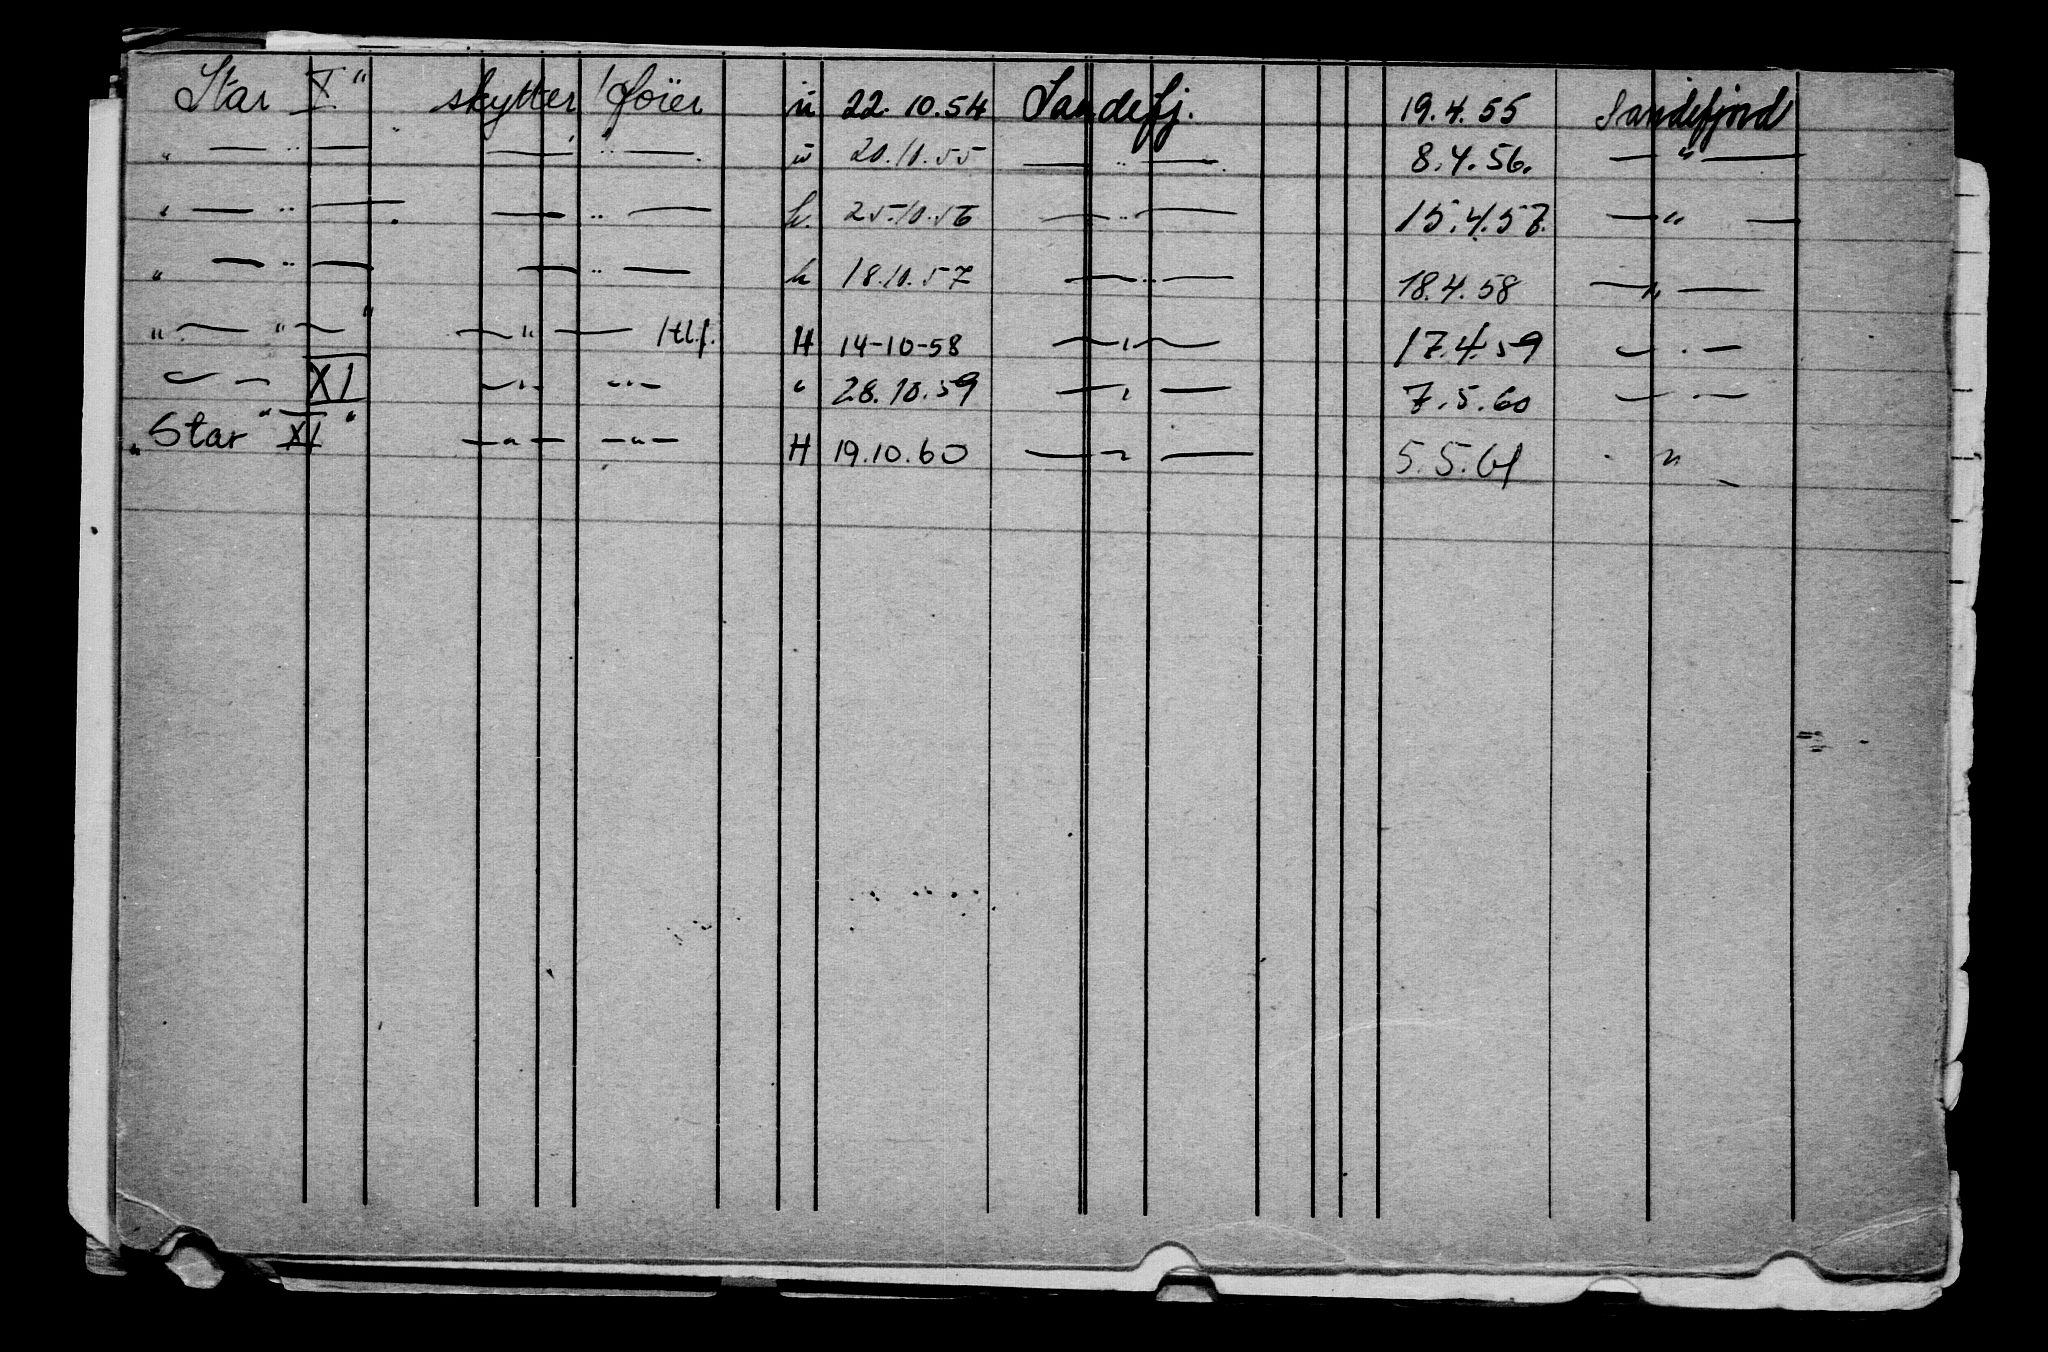 Star X" skytter / føier u 22.10.54 Sandefj. 19.4.55 Sandefjord
" — " — — " — u 20.10.55 — " — 8.4.56. — " —
" — " — — " — h. 25.10.56 — " — 15.4.57. — " —
" — " — — " — h 18.10.57 — " — 18.4.58 — " —
" — " — " — " — H 14-10-58 — " — 17.4.59 — " —
— " — XI — " — — " — " 28.10.59 — " — 7.5.60 — " —
"Star "XI" — " — — " — H 19.10.60 — " — 5.5.61 "